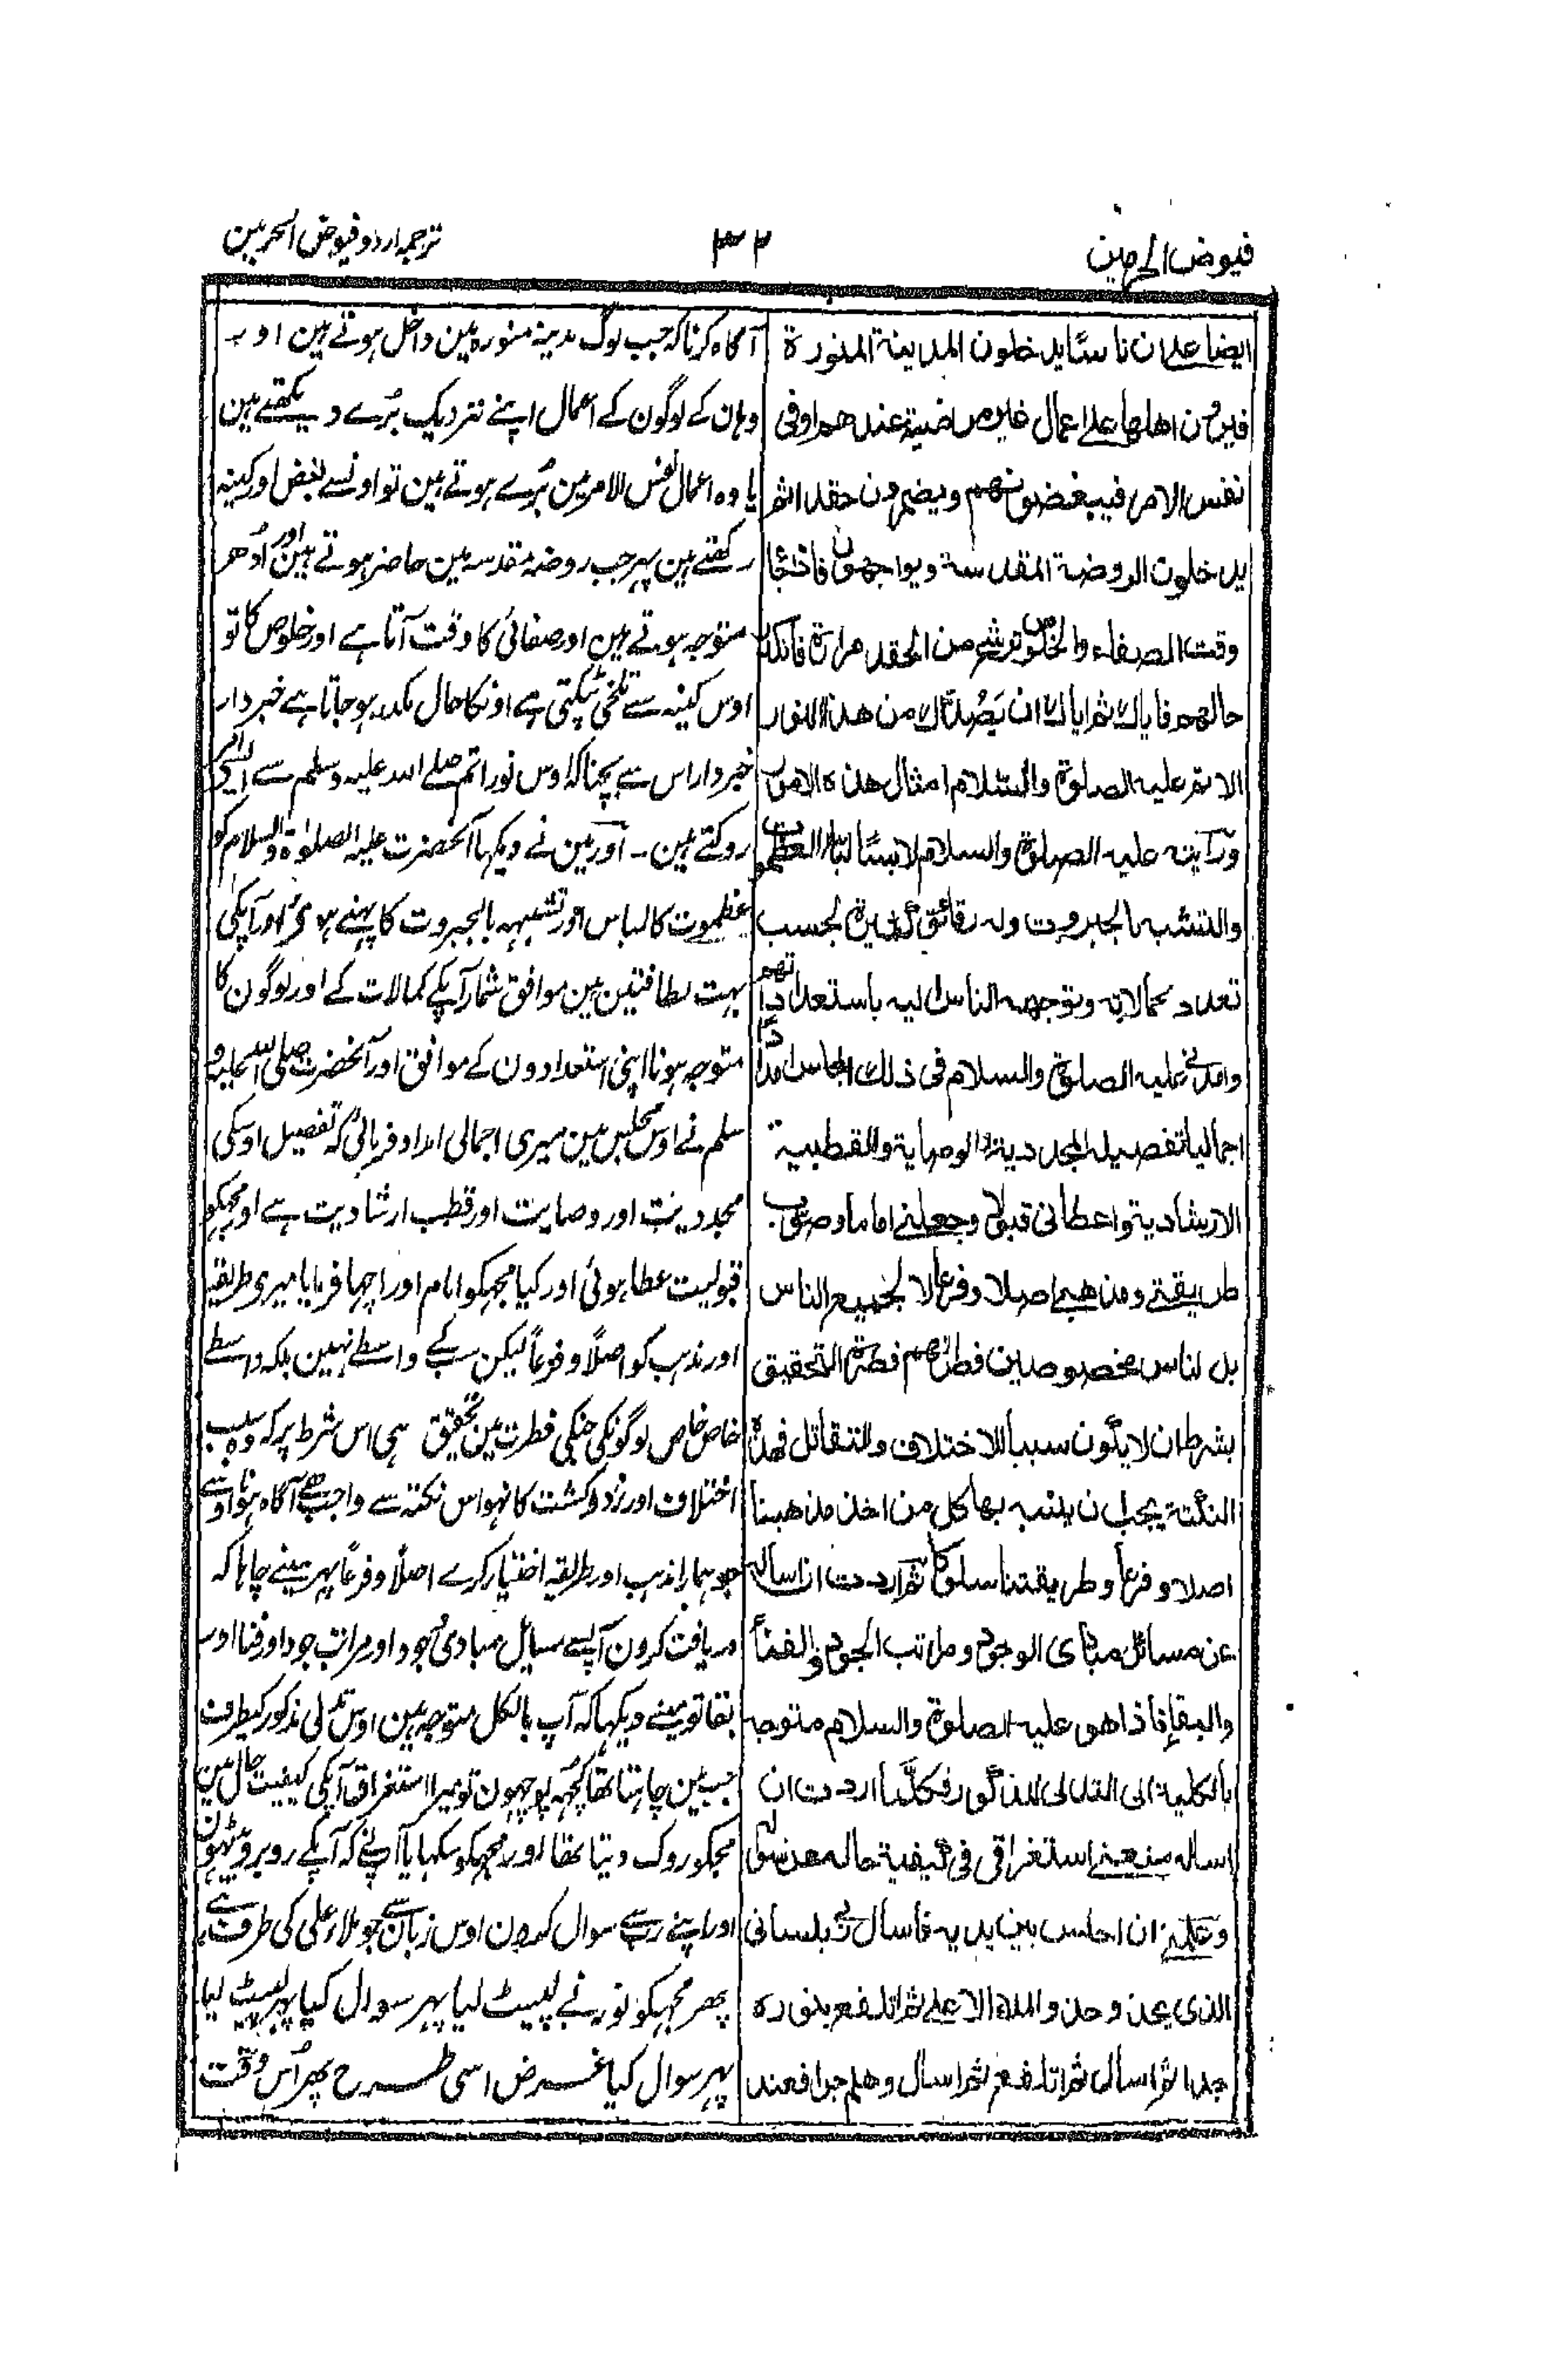 فیوض الحرمین
۳۲
ترجمہ اردو فیوض الحرمین
ایضا علی ان ناسًا یدخلون المدینة المنورة
فیرون اهلها علی اعمال غیر مرضیة عندهم او فی
نفس الامر فیبغضونهم ویضمرون حقدا ثم
یدخلون الروضة المقدسة ویواجهون فاذا جا
وقت الصفاء والخلوص ترشح من الحقد مرارة فانکدر
حالهم فایاك ثم ایاك ان یَصُدّك من هذا النور
الاتم علیه الصلوة والسلام امثال هذه الامور
ورأیته علیه الصلوة والسلام لابسًا لباس العظموت
والتشبه بالجبروت وله رقائق کثیرة بحسب
تعدد کمالاته وتوجهه الناس الیه باستعداداتهم
وامدنی علیه الصلوة والسلام فی ذلك المجلس امدادا
اجمالیا تفصیله المجددیة والوصایة والقطبیة
الارشادیة واعطانی قبولا وجعلنی اماما وصوب
طریقتی ومذهبی اصلا وفرعا لا لجمیع الناس
بل لناس مخصوصین فطرتهم فطرة التحقیق
بشرط ان لا یکون سببا للاختلاف والتقاتل فهذه
النکتة یجب ان ینبه بها کل من اخذ مذهبنا
اصلا وفرعا وطریقتنا سلوکا ثم اردت ان اساله
عن مسائل مبادی الوجود ومراتب الجود والفنا
والبقا فاذا هو علیه الصلوة والسلام متوجه
بالکلیة الی التدلی المذکور فکلما اردت ان
اساله منعنی استغراقی فی کیفیة حاله عن سوال
وعلمنی ان اجلس بین یدیه فاسال ربی بلسانی
الذی یحذو حذو الملاء الاعلی ثم اتلفع بنوره
جدا ثم اسأل ثم اتلفع ثم اسأل وهلم جرا فعند
آگاہ کرنا کہ جب لوگ مدینہ منورہ مین داخل ہوتے ہین اور
وہان کے لوگون کے اعمال اپنے نزدیک بُرے دیکھتے ہین
یا وہ اعمال نفس الامر مین بُرے ہوتے ہین تو اونسے بغض اور کینہ
رکھتے ہین پہر جب روضہ مقدسہ مین حاضر ہوتے ہین اور اُدھر
متوجہ ہوتے ہین اور صفائی کا وقت آتا ہے اور خلوص کا تو
اوس کینہ سے تلخی ٹپکتی ہے اونکا حال مکدر ہو جاتا ہے خبردار
خبردار اس سے بچنا کہ اوس نور اتم صلے اللہ علیہ وسلم سے ایسے امر
روکتے ہین ۔ اور مین نے دیکہا آنحضرت علیہ الصلوٰۃ والسلام کو
عظموت کا لباس اور تشبہہ بالجبروت کا پہنے ہوئے اور آپکی
بہت لطافتین ہین موافق شمار آپکے کمالات کے اور لوگون کا
متوجہ ہونا اپنی استعدادون کے موافق اور آنحضرت صلی اللہ علیہ و
سلم نے اوس مجلس مین میری اجمالی امداد فرمائی کہ تفصیل اوسکی
مجددیت اور وصایت اور قطب ارشادیت ہے اور مجہکو
قبولیت عطا ہوئی اور کیا مجہکو امام اور اچہا فرمایا میرے طریقہ
اور مذہب کو اصلًا و فرعًا لیکن سبکے واسطے نہین بلکہ واسطے
خاص خاص لوگونکی جنکی فطرت مین تحقیق ہی اس شرط پر کہ وہ سبب
اختلاف اور زد و کشت کا نہو اس نکتہ سے واجب ہے آگاہ ہونا اوسے
جو ہمارا مذہب اور طریقہ اختیار کرے اصلًا و فرعًا پہر مینے چاہا کہ
دریافت کرون آپسے مسائل مبادی وجود اور مراتب جود اور فنا اور
بقا تو مینے دیکہا کہ آپ بالکل متوجہ ہین اوس تدلی مذکور کیطرف
جب مین چاہتا تھا کچھ پوچہون تو میرا استغراق آپکی کیفیت حال مین
مجکو روک دیتا تھا اور مجہکو سکہایا آپنے کہ آپکے روبرو بیٹہون
اور اپنے رب سے سوال کرون اوس زبان سے جو ملاء اعلی کی طرف ہے
پھر مجہکو نور نے لپیٹ لیا پہر سوال کیا پہر لپیٹ لیا
پہر سوال کیا غرض اسی طرح پھر اُس وقت